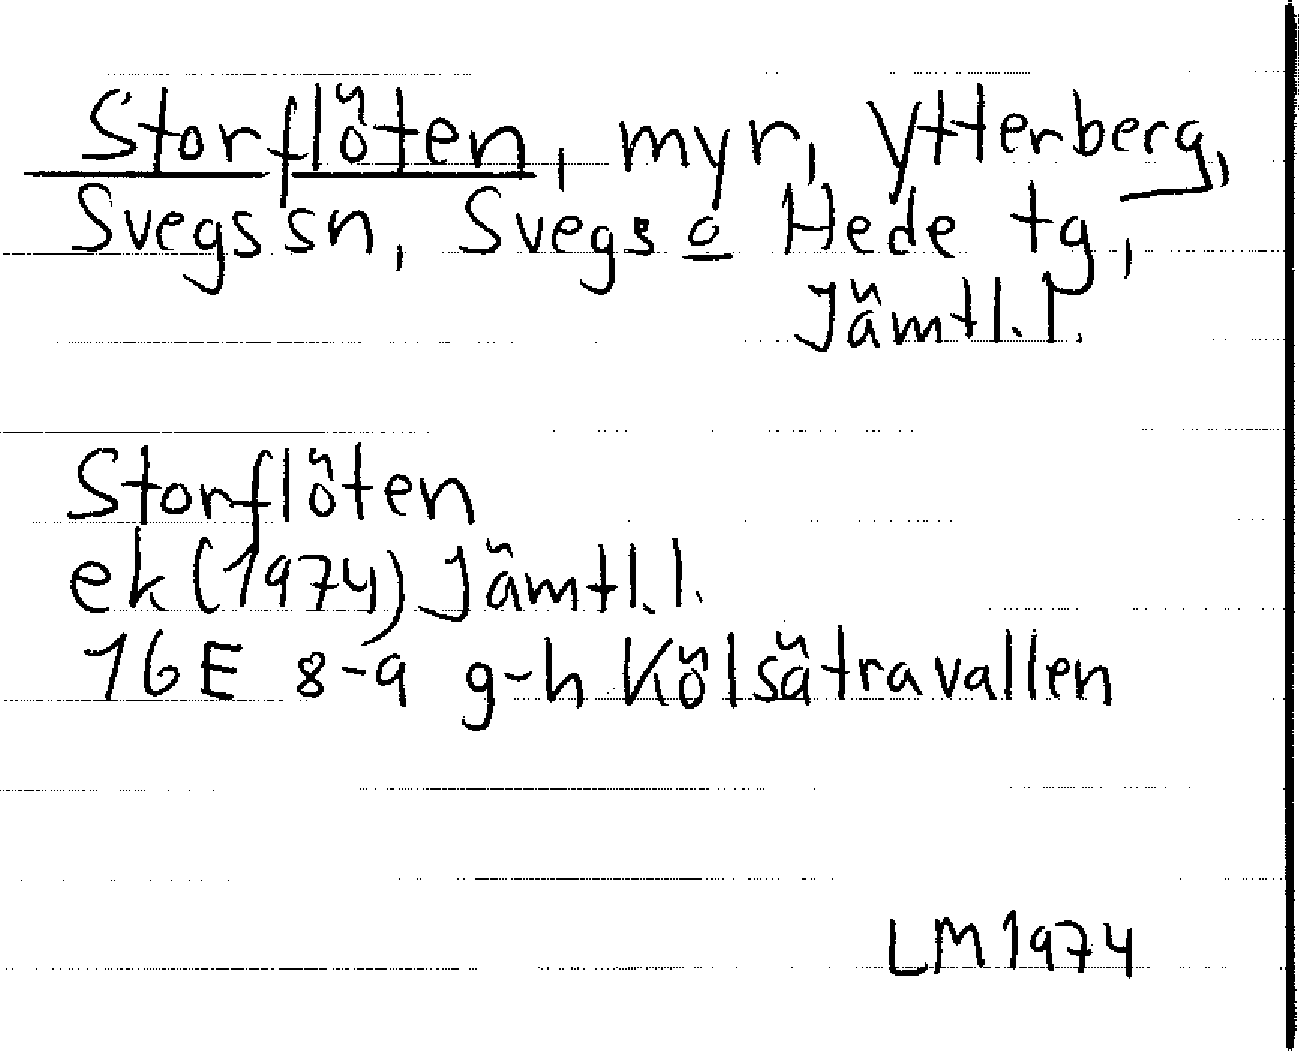 Storflöten, myr, Ytterberg,
Svegs sn, Svegs o Hede tg,
Jämtl.l.
Storflöten
ek (1974) Jämtl.l.
16E 8-9 g-h Kölsätravallen
LM 1974